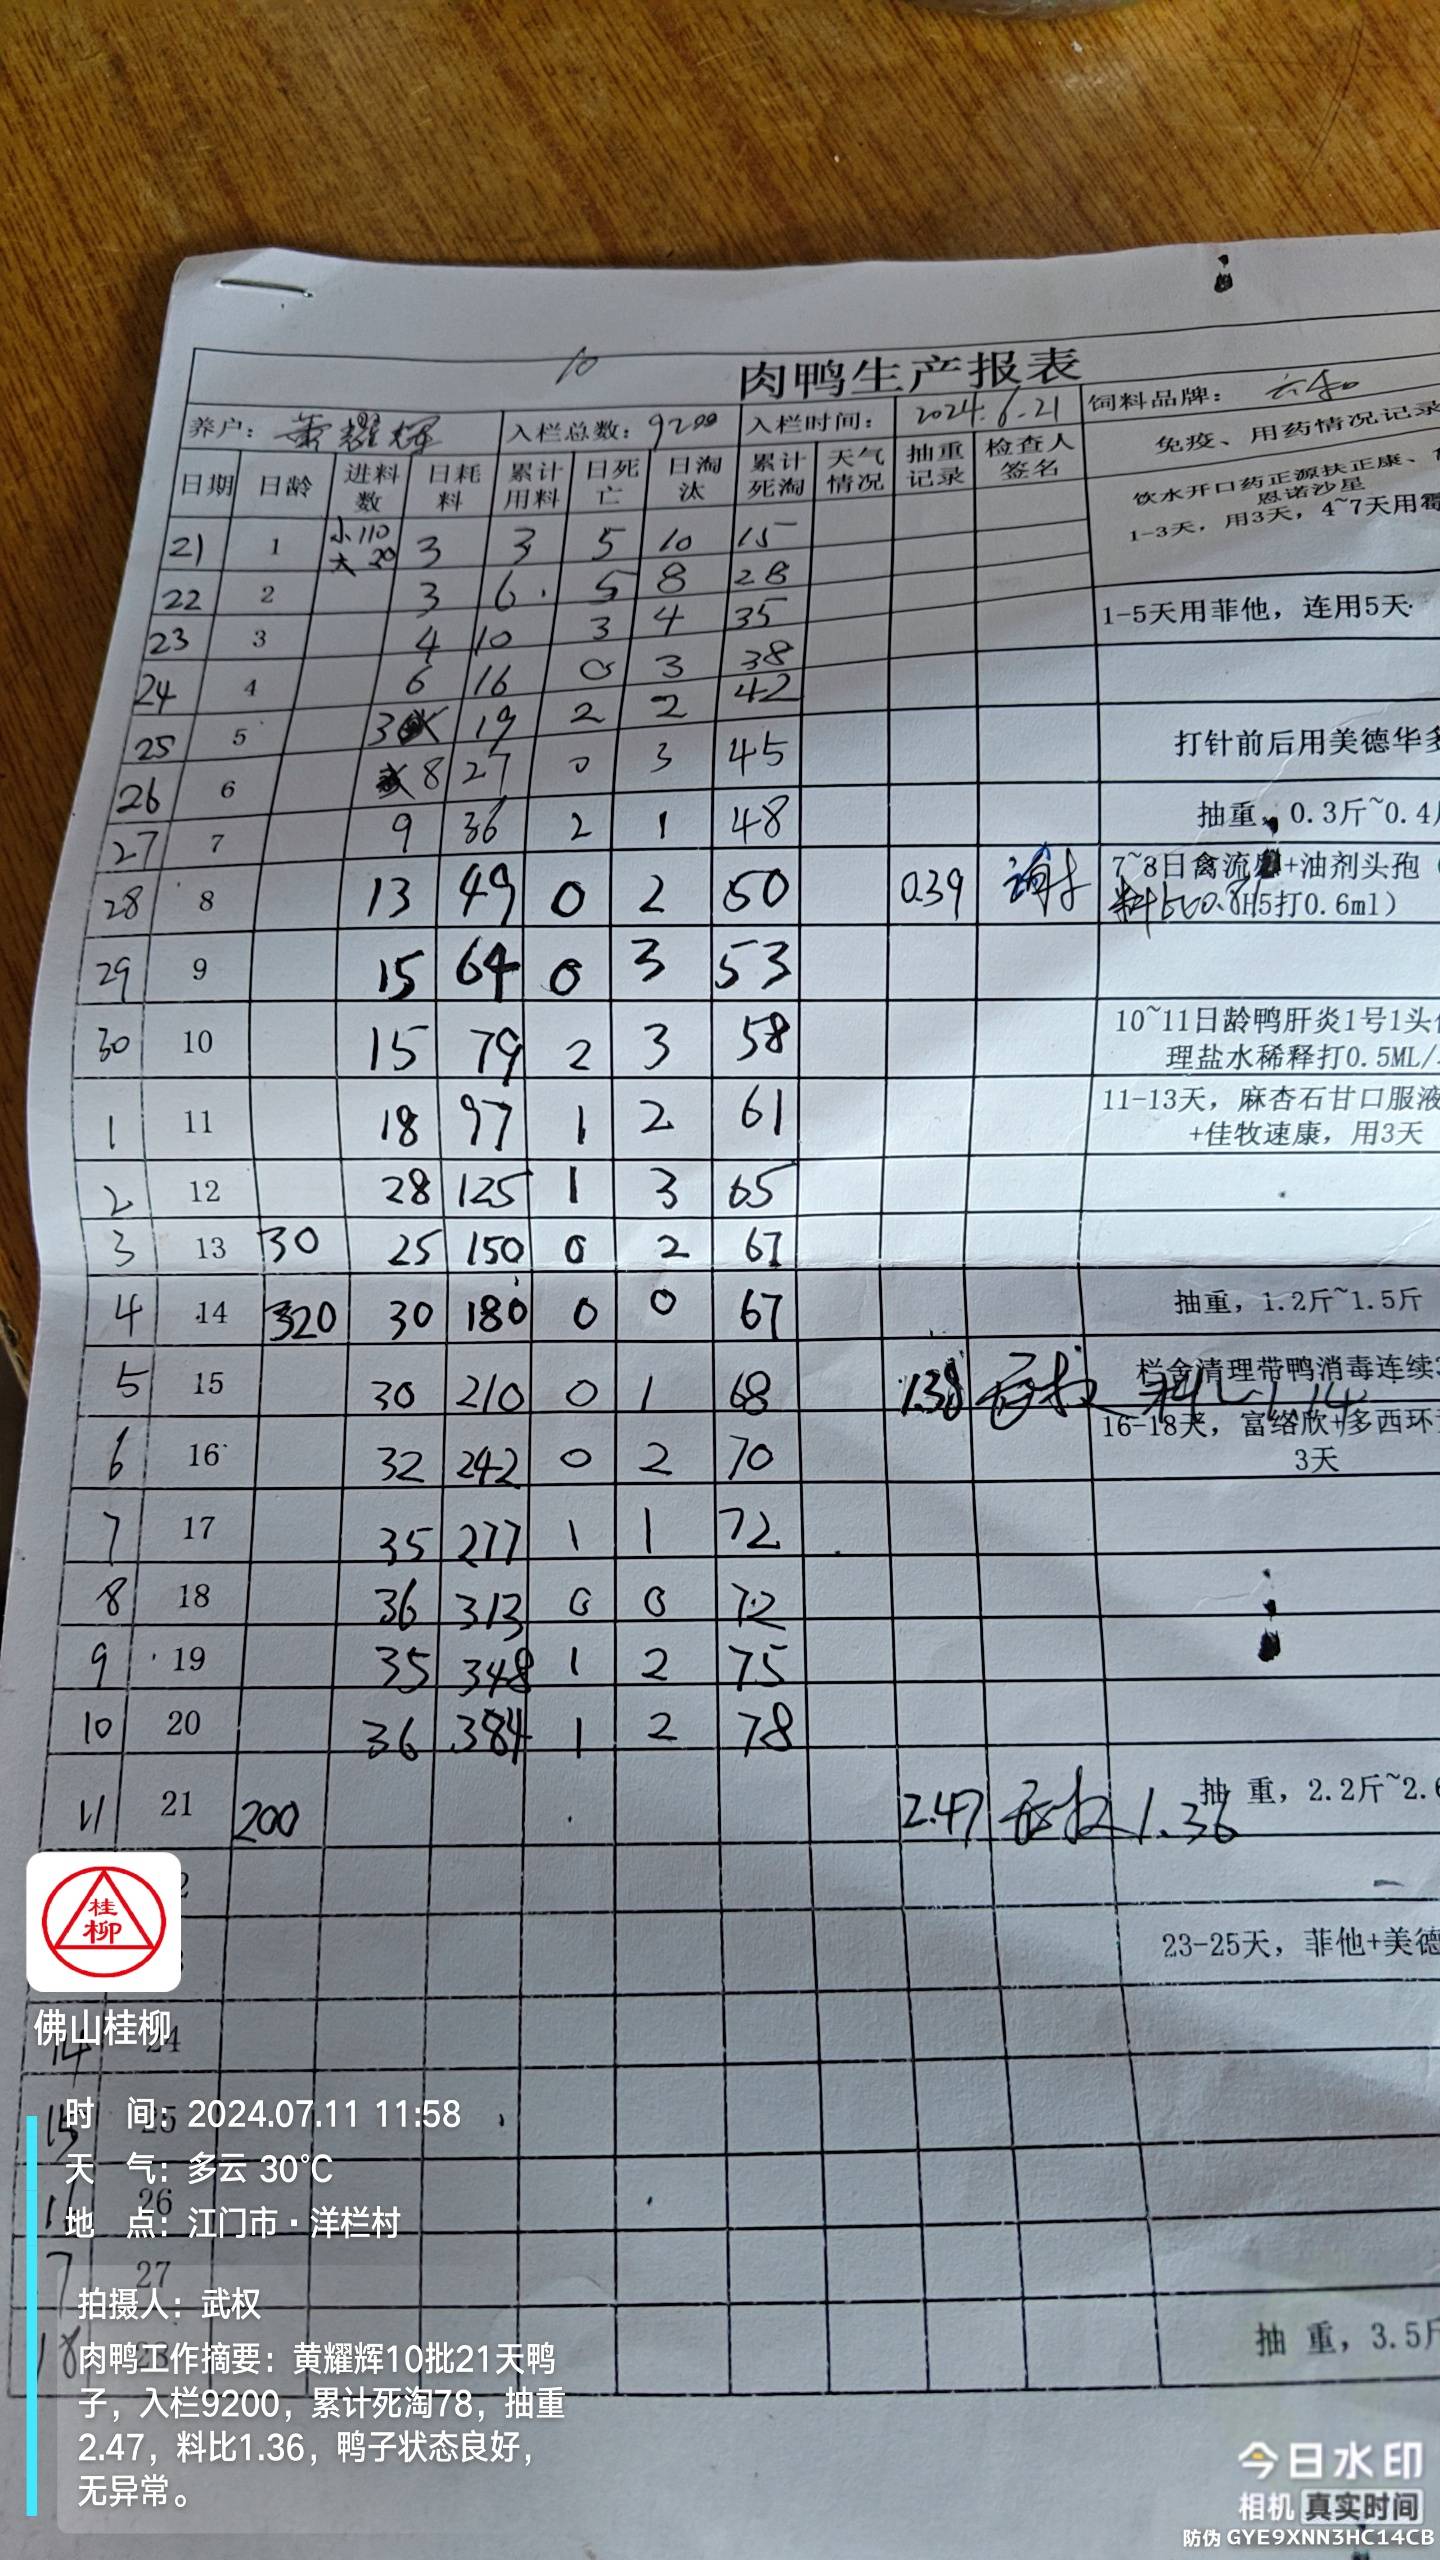 10
肉鸭生产报表
养户：黄耀辉 入栏总数：9200 入栏时间：2024.6.21 饲料品牌：
日期 日龄 进料数 日耗料 累计用料 日死亡 日淘汰 累计死淘 天气情况 抽重记录 检查人签名 免疫、用药情况记录
饮水开口药正源扶正康、
恩诺沙星
1-3天，用3天，4~7天用霉
21 1 小110 大20 3 3 5 10 15
22 2 3 6 5 8 28
23 3 4 10 3 4 35 1-5天用菲他，连用5天
24 4 6 16 0 3 38
25 5 3 19 2 2 42 打针前后用美德华多
26 6 8 27 0 3 45
27 7 9 36 2 1 48 抽重，0.3斤~0.4斤
28 8 13 49 0 2 50 0.39 7~8日禽流 +油剂头孢（
料比0.8 H5打0.6ml）
29 9 15 64 0 3 53
30 10 15 79 2 3 58 10~11日龄鸭肝炎1号1头份
理盐水稀释打0.5ML/
1 11 18 97 1 2 61 11-13天，麻杏石甘口服液
+佳牧速康，用3天
2 12 28 125 1 3 65
3 13 30 25 150 0 2 67
4 14 320 30 180 0 0 67 抽重，1.2斤~1.5斤
5 15 30 210 0 1 68 1.38 武权 料比1.14 栏舍清理带鸭消毒连续3
6 16 32 242 0 2 70 16-18天，富络欣+多西环
3天
7 17 35 277 1 1 72
8 18 36 313 0 0 72
9 19 35 348 1 2 75
10 20 36 384 1 2 78
11 21 200 2.47 武权 1.36 抽 重，2.2斤~2.6
2
3 23-25天，菲他+美德
14 24
15 25
16 26
17 27
18 28 抽 重，3.5斤
桂
柳
佛山桂柳
时 间：2024.07.11 11:58
天 气：多云 30℃
地 点：江门市·洋栏村
拍摄人：武权
肉鸭工作摘要：黄耀辉10批21天鸭
子，入栏9200，累计死淘78，抽重
2.47，料比1.36，鸭子状态良好，
无异常。
今日水印
相机 真实时间
防伪 GYE9XNN3HC14CB